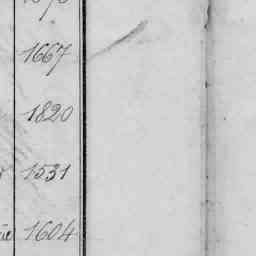 1667
1820
1531
1604